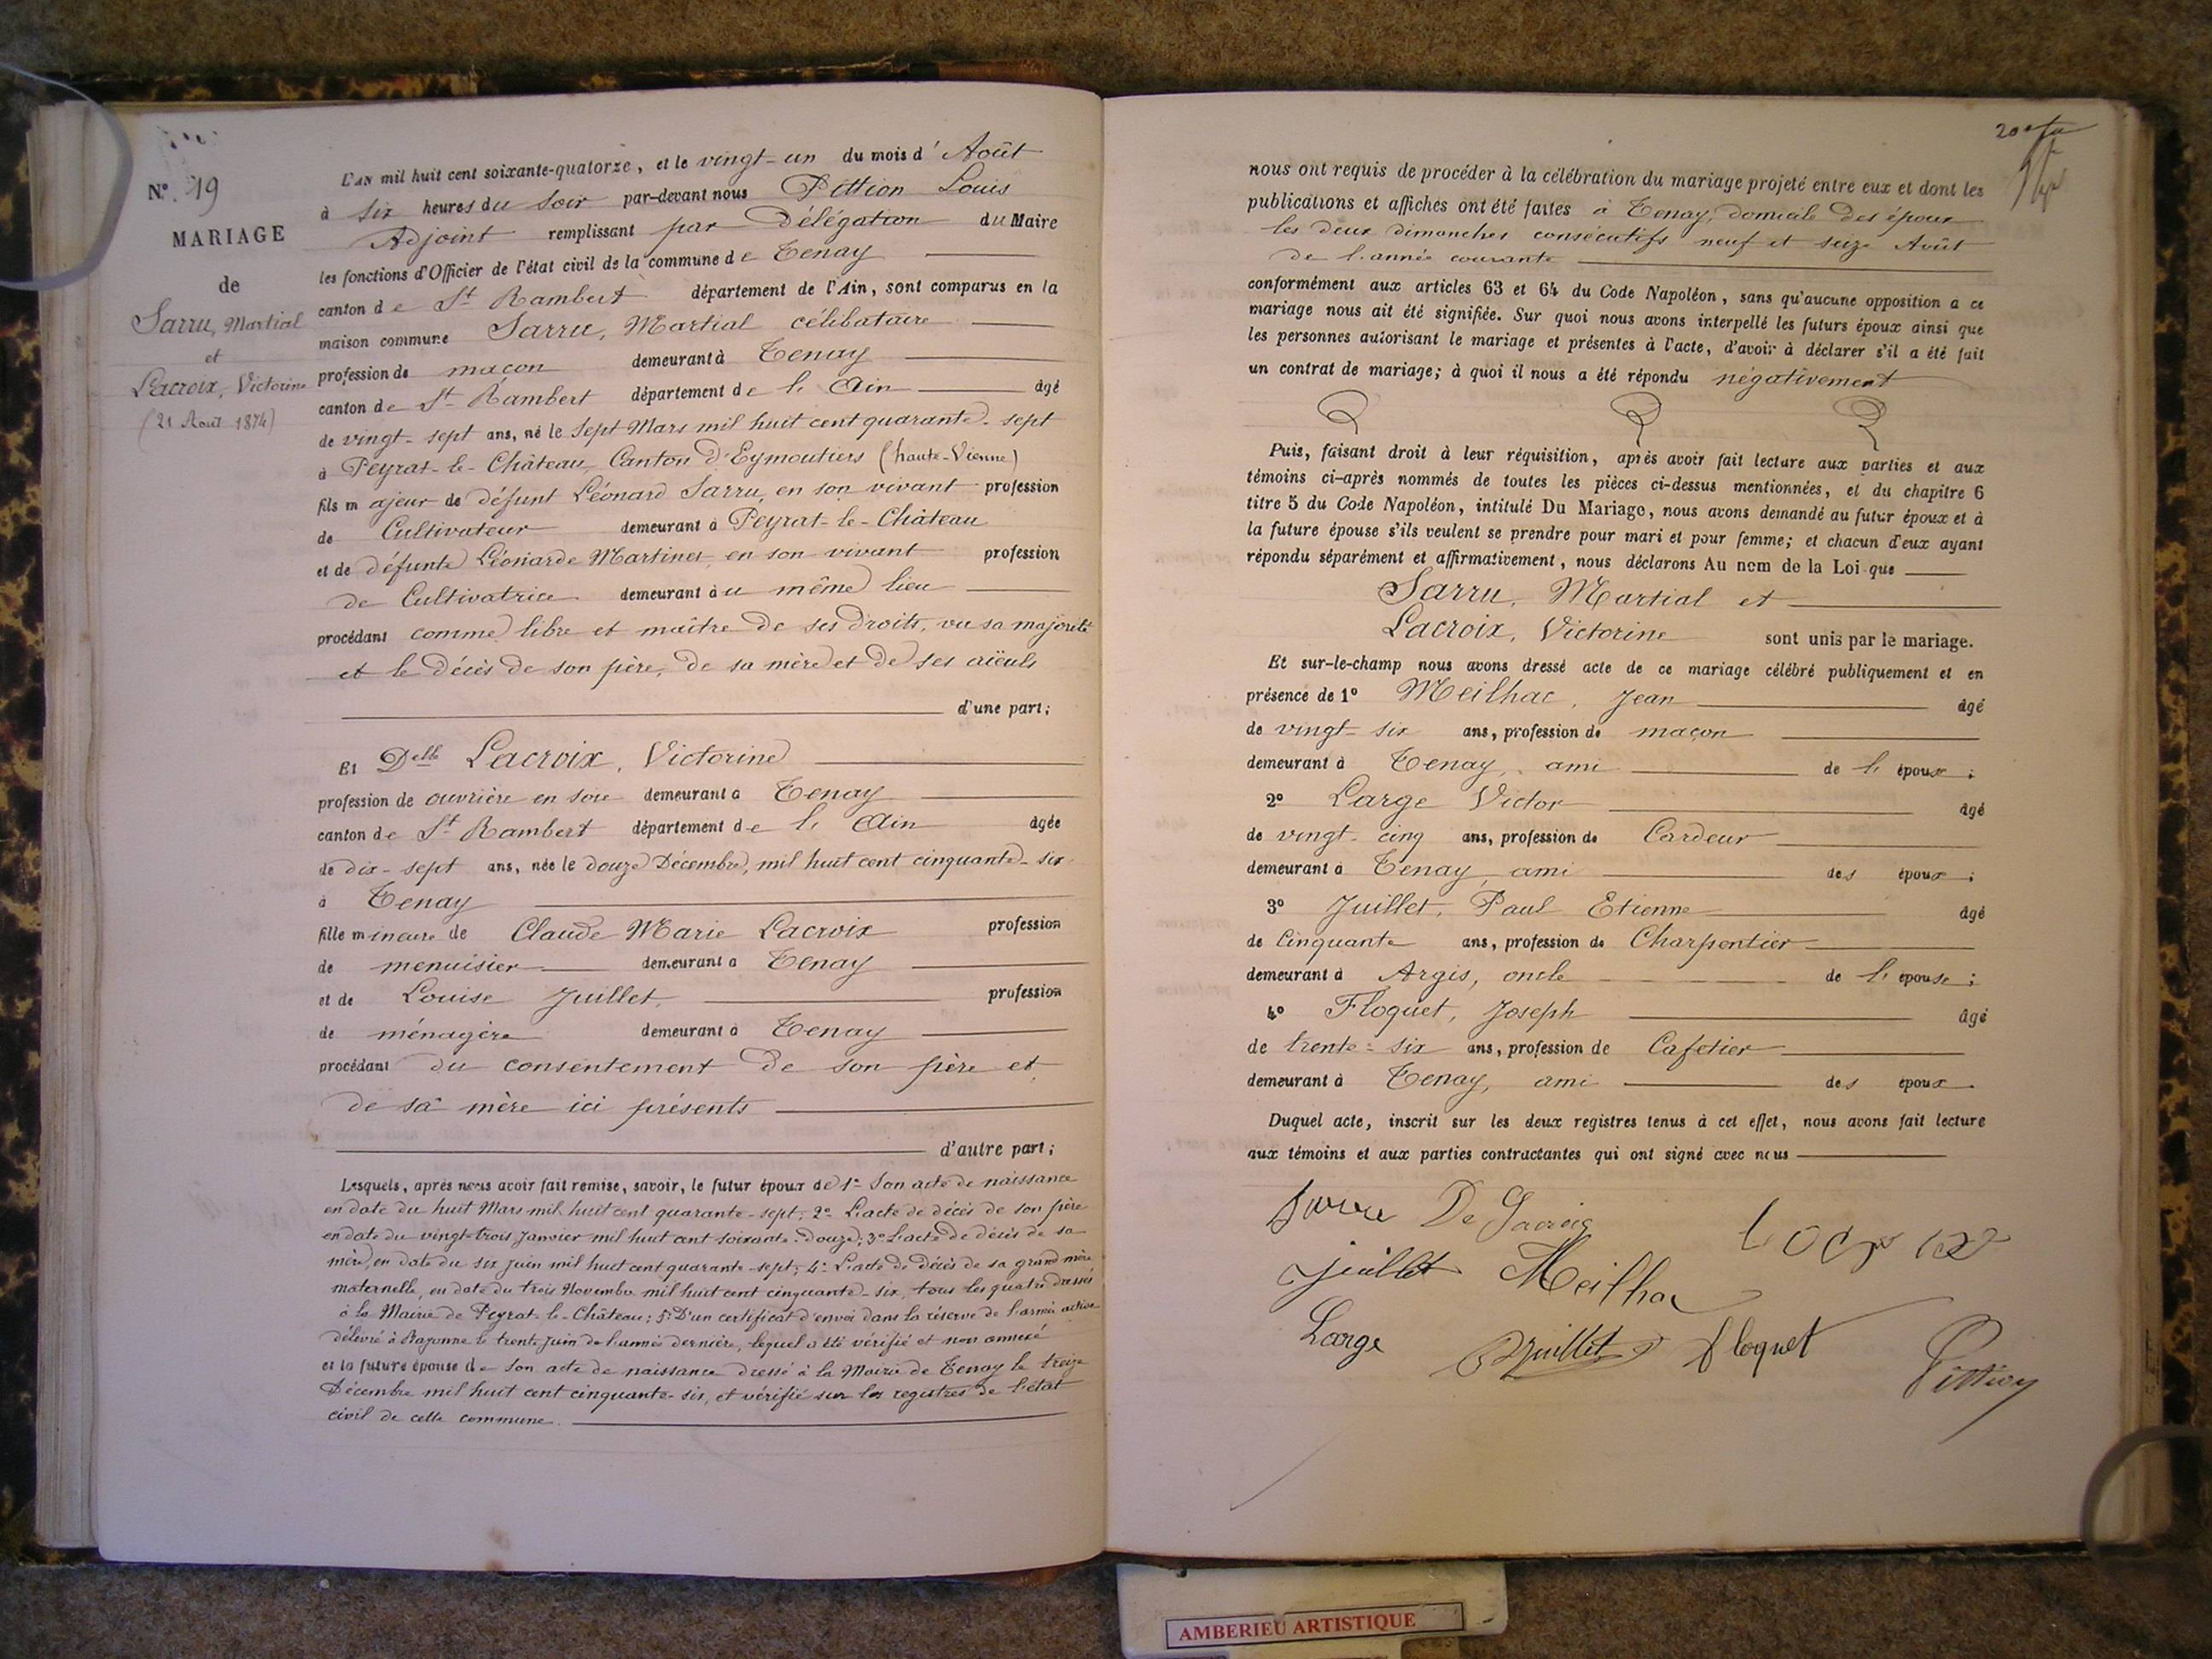 N° 19
MARIAGE
de
Sarru, Martial
et
Lacroix, Victorine
(21 Août 1874)
L'AN mil huit cent soixante-quatorze, et le vingt-un du mois d'Août
à six heures du soir par-devant nous Pittion Louis
Adjoint remplissant par Délégation du Maire
les fonctions d'Officier de l'état civil de la commune de Tenay
canton de St Rambert département de l'Ain, sont comparus en la
maison commune Sarru, Martial célibataire
profession de maçon demeurant à Tenay
canton de St Rambert département de l'Ain âgé
de vingt-sept ans, né le Sept Mars mil huit cent quarante-sept
à Peyrat-le-Château, Canton d'Eymoutiers (haute-Vienne)
fils majeur de défunt Léonard Sarru, en son vivant profession
de Cultivateur demeurant à Peyrat-le-Château
et de défunte Léonarde Martinet, en son vivant profession
de Cultivatrice demeurant au même lieu
procédant comme libre et maître de ses droits, vu sa majorité
et le décès de son père, de sa mère et de ses aïeuls
d'une part;
Et Delle Lacroix, Victorine
profession de ouvrière en soie demeurant à Tenay
canton de St Rambert département de l'Ain âgée
de dix-sept ans, née le douze Décembre, mil huit cent cinquante-six
à Tenay
fille mineure de Claude Marie Lacroix profession
de menuisier demeurant à Tenay
et de Louise Juillet, profession
de ménagère demeurant à Tenay
procédant du consentement de son père et
de sa mère ici présents
d'autre part;
Lesquels, après nous avoir fait remise, savoir, le futur époux de 1° Son acte de naissance
en date du huit Mars mil huit cent quarante-sept; 2° L'acte de décès de son père
en date du vingt-trois Janvier mil huit cent soixante-douze; 3° L'acte de décès de sa
mère, en date du six juin mil huit cent quarante-sept; 4° L'acte de décès de sa grand mère
maternelle, en date du trois Novembre mil huit cent cinquante-six, tous les quatre dressés
à la Mairie de Peyrat-le-Château; 5° D'un certificat d'envoi dans la réserve de l'armée active
délivré à Bayonne le trente Juin de l'année dernière, lequel a été vérifié et non annexé
et la future épouse de son acte de naissance dressé à la Mairie de Tenay le treize
Décembre mil huit cent cinquante-six, et vérifié sur les registres de l'état
civil de cette commune.
nous ont requis de procéder à la célébration du mariage projeté entre eux et dont les
publications et affiches ont été faites à Tenay, domicile des époux
les deux dimanches consécutifs neuf et seize Août
de l'année courante
conformément aux articles 63 et 64 du Code Napoléon, sans qu'aucune opposition a ce
mariage nous ait été signifiée. Sur quoi nous avons interpellé les futurs époux ainsi que
les personnes autorisant le mariage et présentes à l'acte, d'avoir à déclarer s'il a été fait
un contrat de mariage; à quoi il nous a été répondu négativement
Puis, faisant droit à leur réquisition, après avoir fait lecture aux parties et aux
témoins ci-après nommés de toutes les pièces ci-dessus mentionnées, et du chapitre 6
titre 5 du Code Napoléon, intitulé Du Mariage, nous avons demandé au futur époux et à
la future épouse s'ils veulent se prendre pour mari et pour femme; et chacun d'eux ayant
répondu séparément et affirmativement, nous déclarons Au nom de la Loi que
Sarru, Martial et
Lacroix, Victorine sont unis par le mariage.
Et sur-le-champ nous avons dressé acte de ce mariage célébré publiquement et en
présence de 1° Meilhac, Jean âgé
de vingt-six ans, profession de maçon
demeurant à Tenay, ami de l'époux;
2° Large Victor âgé
de vingt-cinq ans, profession de Cardeur
demeurant à Tenay, ami des époux;
3° Juillet, Paul Etienne âgé
de Cinquante ans, profession de Charpentier
demeurant à Argis, oncle de l'épouse;
4° Floquet, Joseph âgé
de trente-six ans, profession de Cafetier
demeurant à Tenay, ami des époux.
Duquel acte, inscrit sur les deux registres tenus à cet effet, nous avons fait lecture
aux témoins et aux parties contractantes qui ont signé avec nous
Juillet Meilhac
Large Juillet Floquet Pittion
AMBERIEU ARTISTIQUE